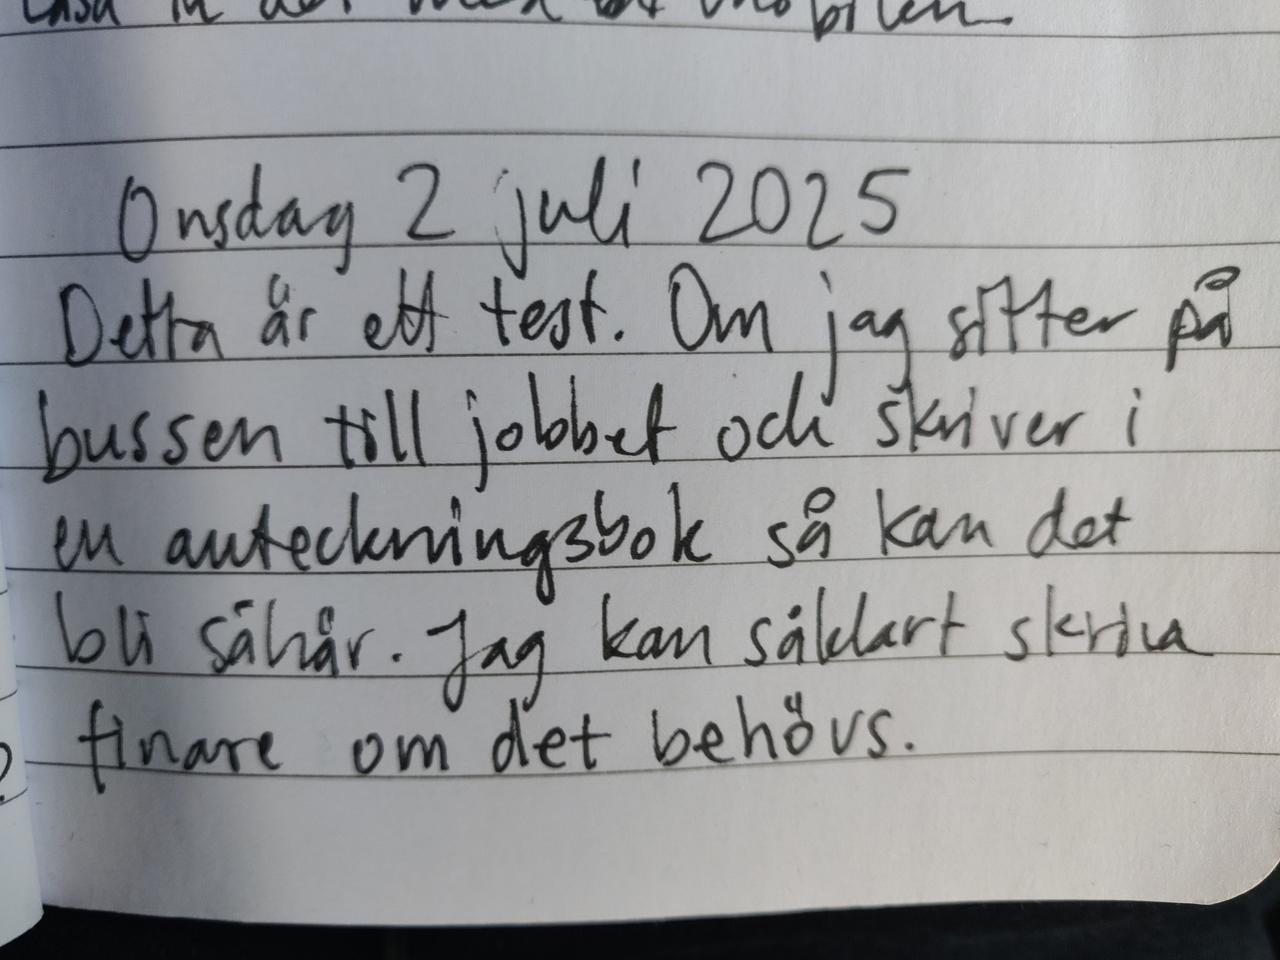 läsa in det med mobilen.
Onsdag 2 juli 2025
Detta är ett test. Om jag sitter på
bussen till jobbet och skriver i
en anteckningsbok så kan det
bli såhär. Jag kan såklart skriva
finare om det behövs.